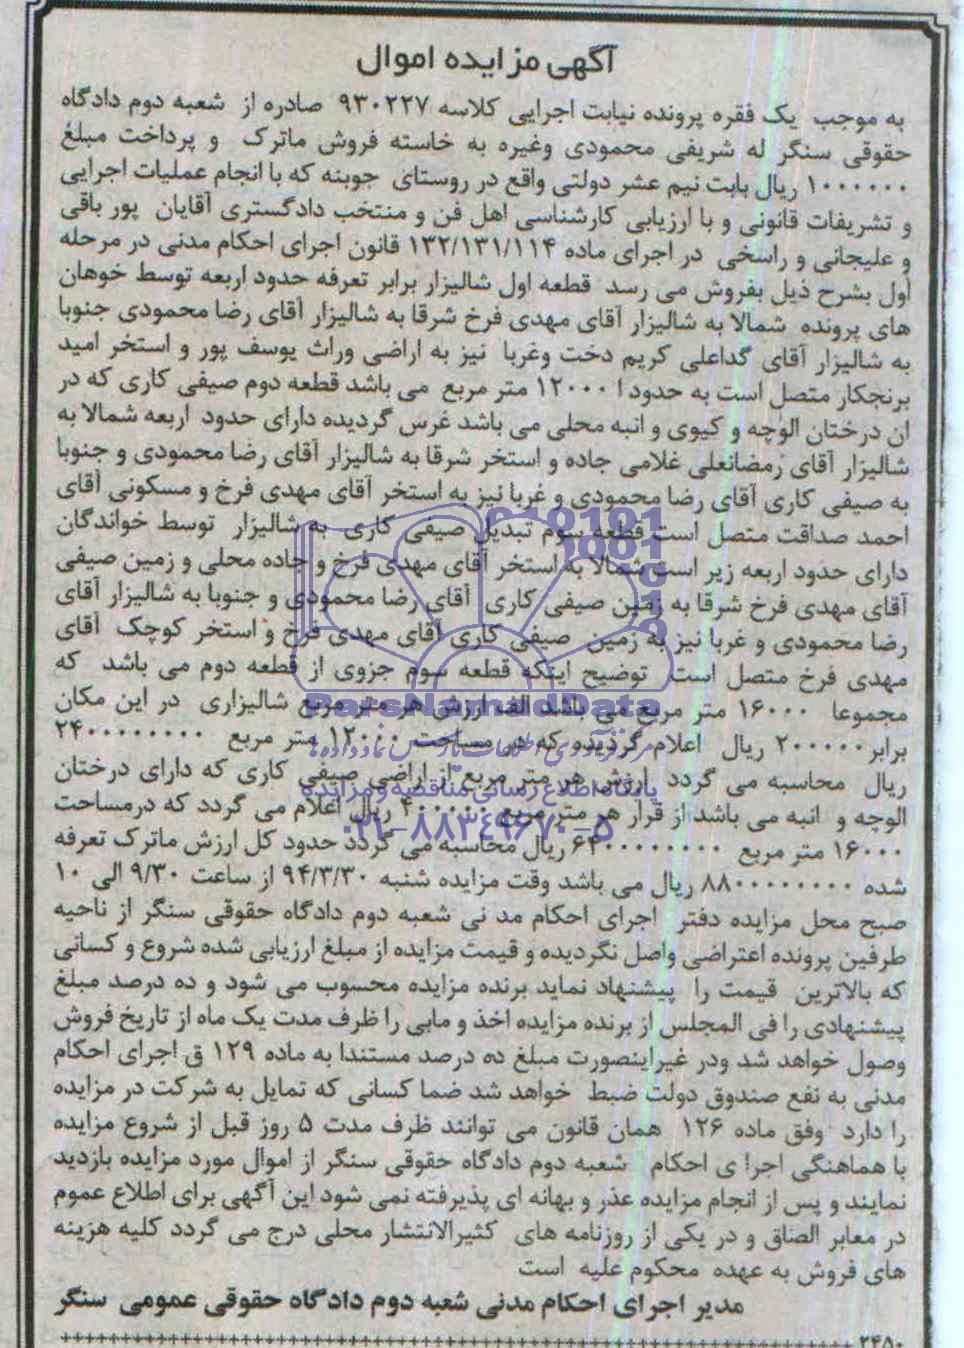 آگهی مزایده اموال
به موجب یک فقره پرونده نیابت اجرایی کلاسه ۹۳۰۲۲۷ صادره از شعبه دوم دادگاه
حقوقی سنگر له شریفی محمودی وغیره به خاسته فروش ماترک و پرداخت مبلغ
۱۰۰۰۰۰۰ ریال بابت نیم عشر دولتی واقع در روستای جوبنه که با انجام عملیات اجرایی
و تشریفات قانونی و با ارزیابی کارشناسی اهل فن و منتخب دادگستری آقایان پور باقی
و علیجانی و راسخی در اجرای ماده ۱۳۲/۱۳۱/۱۱۴ قانون اجرای احکام مدنی در مرحله
اول بشرح ذیل بفروش می رسد قطعه اول شالیزار برابر تعرفه حدود اربعه توسط خوهان
های پرونده شمالا به شالیزار آقای مهدی فرخ شرقا به شالیزار آقای رضا محمودی جنوبا
به شالیزار آقای گداعلی کریم دخت وغربا نیز به اراضی وراث یوسف پور و استخر امید
برنجکار متصل است به حدود ا ۱۲۰۰۰ متر مربع می باشد قطعه دوم صیفی کاری که در
ان درختان الوچه و کیوی و انبه محلی می باشد غرس گردیده دارای حدود اربعه شمالا به
شالیزار آقای رمضانعلی غلامی جاده و استخر شرقا به شالیزار آقای رضا محمودی و جنوبا
به صیفی کاری آقای رضا محمودی و غربا نیز به استخر آقای مهدی فرخ و مسکونی آقای
احمد صداقت متصل است قطعه سوم تبدیل صیفی کاری به شالیزار توسط خواندگان
دارای حدود اربعه زیر است شمالا به استخر آقای مهدی فرخ و جاده محلی و زمین صیفی
آقای مهدی فرخ شرقا به زمین صیفی کاری آقای رضا محمودی و جنوبا به شالیزار آقای
رضا محمودی و غربا نیز به زمین صیفی کاری آقای مهدی فرخ و استخر کوچک آقای
مهدی فرخ متصل است توضیح اینکه قطعه سوم جزوی از قطعه دوم می باشد که
مجموعا ۱۶۰۰۰ متر مربع می باشد الف ارزش هر متر مربع شالیزاری در این مکان
برابر ۲۰۰۰۰۰ ریال اعلام گردیده که در مساحت ۱۲۰۰۰ متر مربع ۲۴۰۰۰۰۰۰۰۰
ریال محاسبه می گردد ارزش هر متر مربع از اراضی صیفی کاری که دارای درختان
الوجه و انبه می باشد از قرار هر متر مربع ۴۰۰۰۰۰ ریال اعلام می گردد که درمساحت
۱۶۰۰۰ متر مربع ۶۴۰۰۰۰۰۰۰۰ ریال محاسبه می گردد حدود کل ارزش ماترک تعرفه
شده ۸۸۰۰۰۰۰۰۰۰ ریال می باشد وقت مزایده شنبه ۹۴/۳/۳۰ از ساعت ۹/۳۰ الی ۱۰
صبح محل مزایده دفتر اجرای احکام مد نی شعبه دوم دادگاه حقوقی سنگر از ناحیه
طرفین پرونده اعتراضی واصل نگردیده و قیمت مزایده از مبلغ ارزیابی شده شروع و کسانی
که بالاترین قیمت را پیشنهاد نماید برنده مزایده محسوب می شود و ده درصد مبلغ
پیشنهادی را فی المجلس از برنده مزایده اخذ و مابی را ظرف مدت یک ماه از تاریخ فروش
وصول خواهد شد ودر غیراینصورت مبلغ ده درصد مستندا به ماده ۱۲۹ ق اجرای احکام
مدنی به نفع صندوق دولت ضبط خواهد شد ضما کسانی که تمایل به شرکت در مزایده
را دارد وفق ماده ۱۲۶ همان قانون می توانند ظرف مدت ۵ روز قبل از شروع مزایده
با هماهنگی اجرا ی احکام شعبه دوم دادگاه حقوقی سنگر از اموال مورد مزایده بازدید
نمایند و پس از انجام مزایده عذر و بهانه ای پذیرفته نمی شود این آگهی برای اطلاع عموم
در معابر الصاق و در یکی از روزنامه های کثیرالانتشار محلی درج می گردد کلیه هزینه
های فروش به عهده محکوم علیه است
مدیر اجرای احکام مدنی شعبه دوم دادگاه حقوقی عمومی سنگر
۲۴۵۰
ParsNamadData
مرکز فرآوری اطلاعات پارس نماد داده ها
پایگاه اطلاع رسانی مناقصه و مزایده
۰۲۱-۸۸۳۴۹۶۷۰-۵